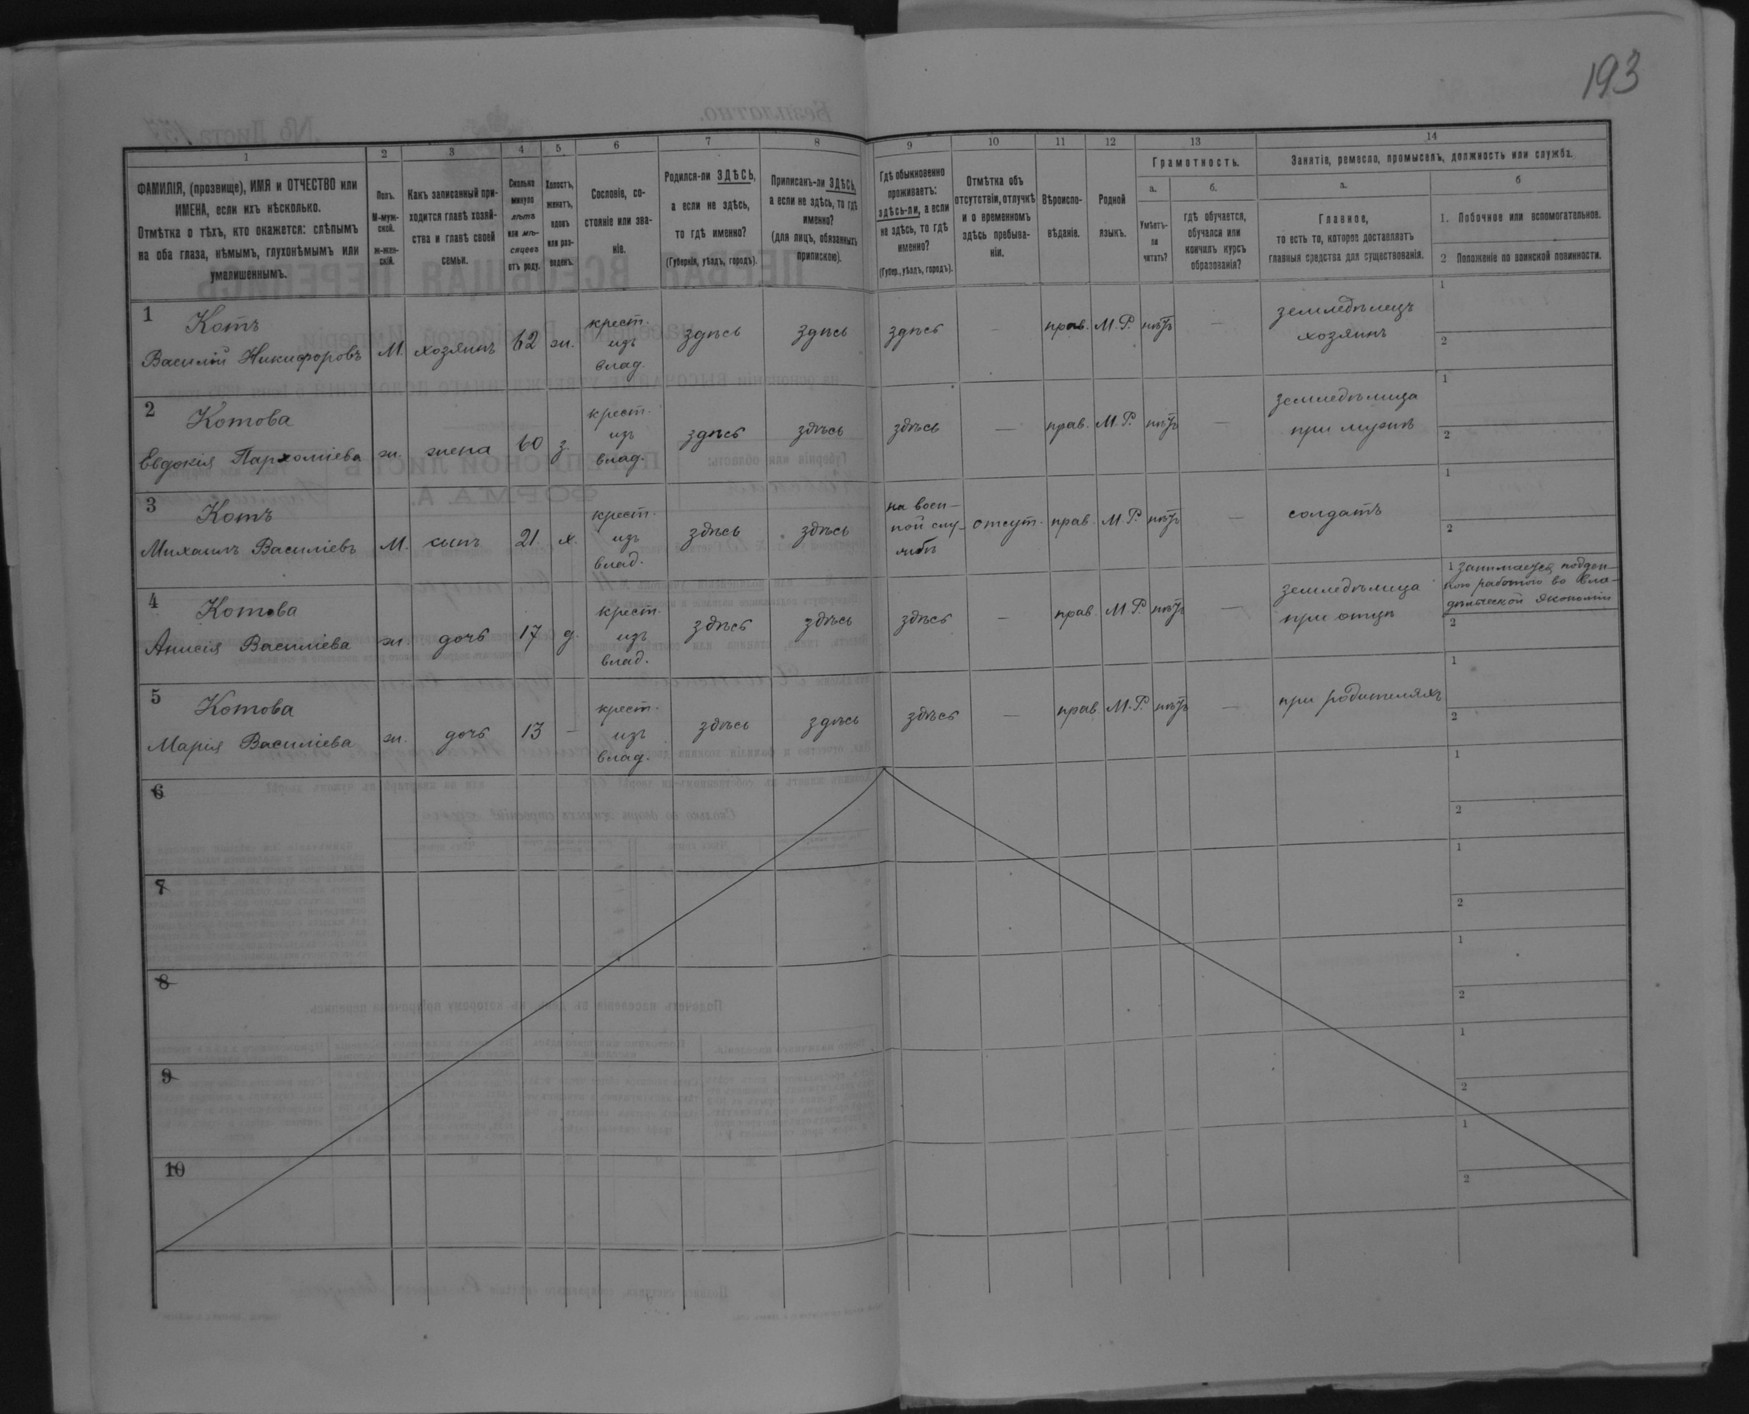 193
1
2
3
4
5
6
7
8
9
10
11
12
13
14
ФАМИЛІЯ, (прозвище), ИМЯ и ОТЧЕСТВО или
ИМЕНА, если ихъ нѣсколько.
Отмѣтка о тѣхъ, кто окажется: слѣпымъ
на оба глаза, нѣмымъ, глухонѣмымъ или
умалишеннымъ.
Полъ.
М-муж-
ской.
ж-жен-
скій.
Какъ записанный при-
ходится главѣ хозяй-
ства и главѣ своей
семьи.
Сколько
минуло
лѣтъ
или мѣ-
сяцевъ
отъ роду.
Холостъ,
женатъ,
вдовъ
или раз-
веденъ.
Сословіе, со-
стояніе или зва-
ніе.
Родился-ли ЗДѢСЬ,
а если не здѣсь,
то гдѣ именно?
(Губернія, уѣздъ, городъ).
Приписанъ-ли ЗДѢСЬ,
а если не здѣсь, то гдѣ
именно?
(для лицъ, обязанныхъ
припискою).
Гдѣ обыкновенно
проживаетъ:
здѣсь-ли, а если
не здѣсь, то гдѣ
именно?
(Губер., уѣздъ, городъ).
Отмѣтка объ
отсутствіи, отлучкѣ
и о временномъ
здѣсь пребыва-
ніи.
Вѣроиспо-
вѣданіе.
Родной
языкъ.
Грамотность.
а.
б.
Умѣетъ-
ли
читать?
гдѣ обучается,
обучался или
кончилъ курсъ
образованія?
Занятіе, ремесло, промыселъ, должность или служба.
а.
б
Главное,
то есть то, которое доставляетъ
главныя средства для существованія.
1. Побочное или вспомогательное.
2 Положеніе по воинской повинности.
1
Котъ
Василій Никифоровъ
М.
хозяинъ
62
ж.
крест.
изъ
влад.
здѣсь
здѣсь
здѣсь
—
прав.
М.Р.
нѣтъ
—
земледѣлецъ
хозяинъ
1
2
2
Котова
Евдокія Пархоміева
ж.
жена
60
з.
крест.
изъ
влад.
здѣсь
здѣсь
здѣсь
—
прав.
М.Р.
нѣтъ
—
земледѣлица
при мужѣ
1
2
3
Котъ
Михаилъ Василіевъ
М.
сынъ
21
х.
крест.
изъ
влад.
здѣсь
здѣсь
на воен-
ной слу-
жбѣ
отсут.
прав.
М.Р.
нѣтъ
—
солдатъ
1
2
4
Котова
Анисія Василіева
ж.
дочь
17
д.
крест.
изъ
влад.
здѣсь
здѣсь
здѣсь
—
прав.
М.Р.
нѣтъ
—
земледѣлица
при отцѣ
1 занимается поден-
ною работою во вла-
дѣльческой экономіи
2
5
Котова
Марія Василіева
ж.
дочь
13
—
крест.
изъ
влад.
здѣсь
здѣсь
здѣсь
—
прав.
М.Р.
нѣтъ
—
при родителяхъ
1
2
6
1
2
7
1
2
8
1
2
9
1
2
10
1
2